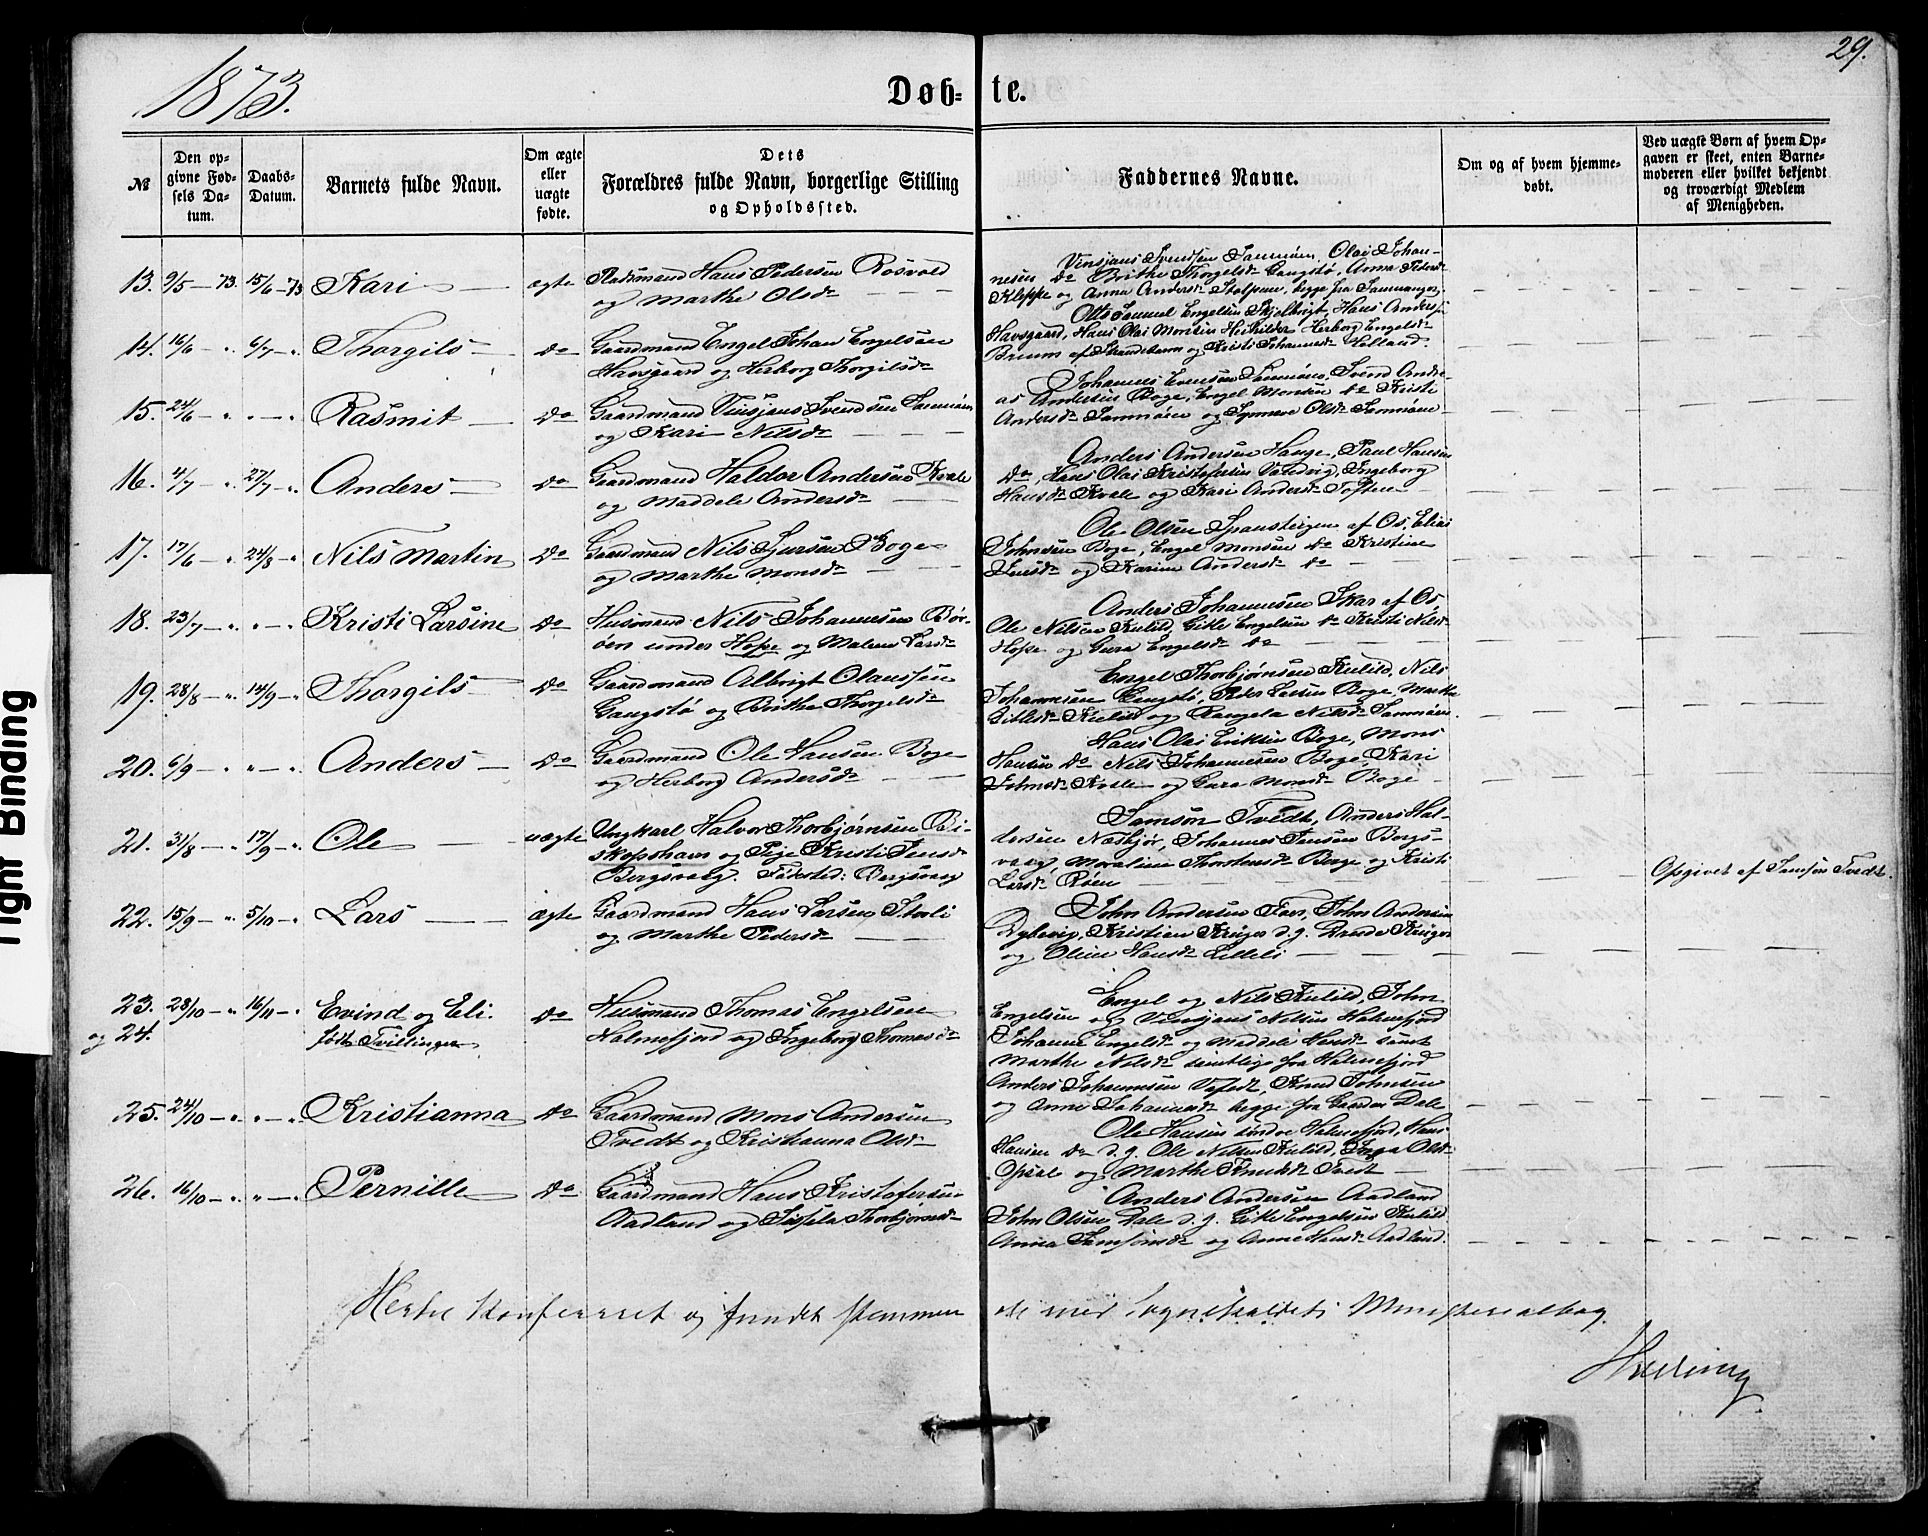 1873.
Døb- te.
29.
№
Den op-
givne Fød-
sels Da-
tum.
Daabs-
Datum.
Barnets fulde Navn.
Om ægte
eller
uægte
fødte.
Dets
Forældres fulde Navn, borgerlige Stilling
og Opholdssted.
Faddernes Navne.
Om og af hvem hjemme-
døbt.
Ved uægte Børn af hvem Op-
gaven er skeet, enten Barne-
moderen eller hvilket bekjendt
og troværdigt Medlem
af Menigheden.
13. 9/5 — 73. 15/6 — 73 Kari — ægte Pladsmand Hans Pedersen Rosvold
og Marthe Olsdr
Vinsjans Svendsen Samnøen, Olai Johan-
nesen do Brithe Thorgelsdr Gangstø, Anna Pedersdr
Kleppe og Anna Andersdr Stolpene, begge fra Samnanger
14. 16/6 — " 6/7 — " Thorgils — do Gaardmand Engel Johan Engelsen
Havsgaard og Herborg Thorgilsdr
Otto Samuel Engelsen Skjelbreigt, Hans Anders.
Havsgaard, Hans Olai Monsen Herborg Engelsdr
af Strandebarm og Kristi Johannesdr Holland.
15. 24/6 — " " — " Rasmit — do Gaardmand Vinsjans Svendsen Samnøen
og Kari Nilsdr
Johannes Evensen Samnøen, Svend Andre-
as Andersen Boge, Engel Monsen do Kristi
Andersdr Samnøen og Synneve Olsdr Samnøen
16. 4/7 — " 27/7 — " Anders — do Gaardmand Haldor Andersen Kvale
og Maddele Andersdr
Anders Andersen Hauge, Paul Hansen
do, Hans Olai Kristofersen Vaagedvig, Ingeborg
Hansdr Kvale og Kari Andersdr Toften
17. 17/6 — " 24/8 — " Nils Martin do Gaardmand Nils Larsen Boge
og Marthe Monsdr
Ole Olsen Spansteigen af Os, Elias
Johnsen Boge, Engel Monsen do Kristine
og Karine Andersdr do
18. 23/7 — " " — " Kristi Larsine do Husmand Nils Johannesen Bør-
øen under Hope og Malene Larsdr
Anders Johannesen Skar af Os
Ole Nilsen Kulild, Gitle Engelsen do Kristi Nilsdr
Hope og Gura Engelsdr do
19. 28/8 — " 14/9 — " Thorgils — do Gaardmand Albrigt Olaussen
Gangstø og Brithe Thorgelsdr
Engel Thorbjørnsen Kulild, Nils
Johannesen Gangstø, Peder Larsen Boge, Marthe
Gitlesdr Kulild og Rangela Nilsdr Samnøen.
20. 6/9 — " " — " Anders — do Gaardmand Ole Hansen Boge
og Herborg Andersdr
Hans Olai Eriksen Boge, Mons
Hansen do Nils Johannesen Boge, Kari
Johnsdr Kvale og Gura Monsdr Boge
21. 31/8 — " 17/9 — " Ole — uægte Ungkarl Halvor Thorbjørnsen Bi-
skopshavn og Pige Kristi Jensdr
Bergsvaag. Fødested: Bergsvaag
Samson Tvedt, Anders Hal-
dorsen Næshjør, Johannes Jensen Bergs-
vaag, Moraline Thorstensdr Berge og Kristi
Larsdr Røen
Opgivet af Samson Tvedt.
22. 15/9 — " 5/10 — " Lars — ægte Gaardmand Hans Larsen Storli
og Marthe Pedersdr
John Andersen Foer, John Andersen
Dybevig, Kristian Krüger d.y. Krüger
og Oline Hansdr Lilleli
23.
og 24. 28/10 — " 16/11 — " Evind og Eli.
fødte Tvillinger do Husmand Thomas Engelsen
Halmefjord og Ingeborg Thomasdr
Engel og Nils Kulild, John
Engelsen og Vinsjans Nilsen Halmefjord
Johanne Engelsdr og Maddele Hansdr samt
Marthe Nilsdr samtlige fra Halmefjord
25. 24/10 — " " — " Kristianna do Gaardmand Mons Andersen
Tvedt og Kristianna Olsdr
Anders Johannesen Tvedt, Knud Johnsen
og Anne Johannesdr begge fra Gaarden Dale
Ole Hansen søndre Halmefjord, Hans
Hansen do d.y. Ole Nilsen Kulild, Inga Olsdr
Opsal og Marthe Knudsdr Tvedt
26. 16/10 — " " — " Pernille do Gaardmand Hans Kristofersen
Aadland og Sissela Thorbjørnsdr
Anders Andersen Aadland
John Olsen Dale d.y. Gitle Engelsen Kulild
Anna Samsonsdr og Anne Hansdr Aadland.
Hertil Konfereret og fundet stemmen de med Sognekaldets Ministerialbog.
Tight Binding